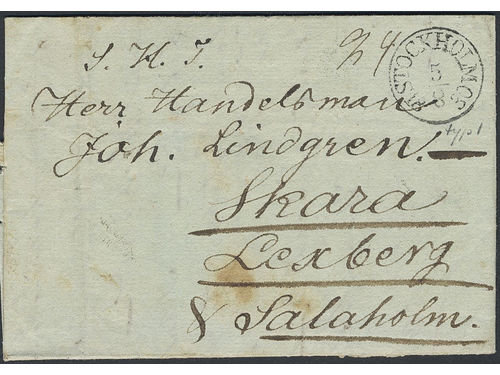 S. H. T.
STOCKHOLM
Herr Handelsman
typ 1
Joh. Lindgren.
Skara
Lexberg
& Salaholm.